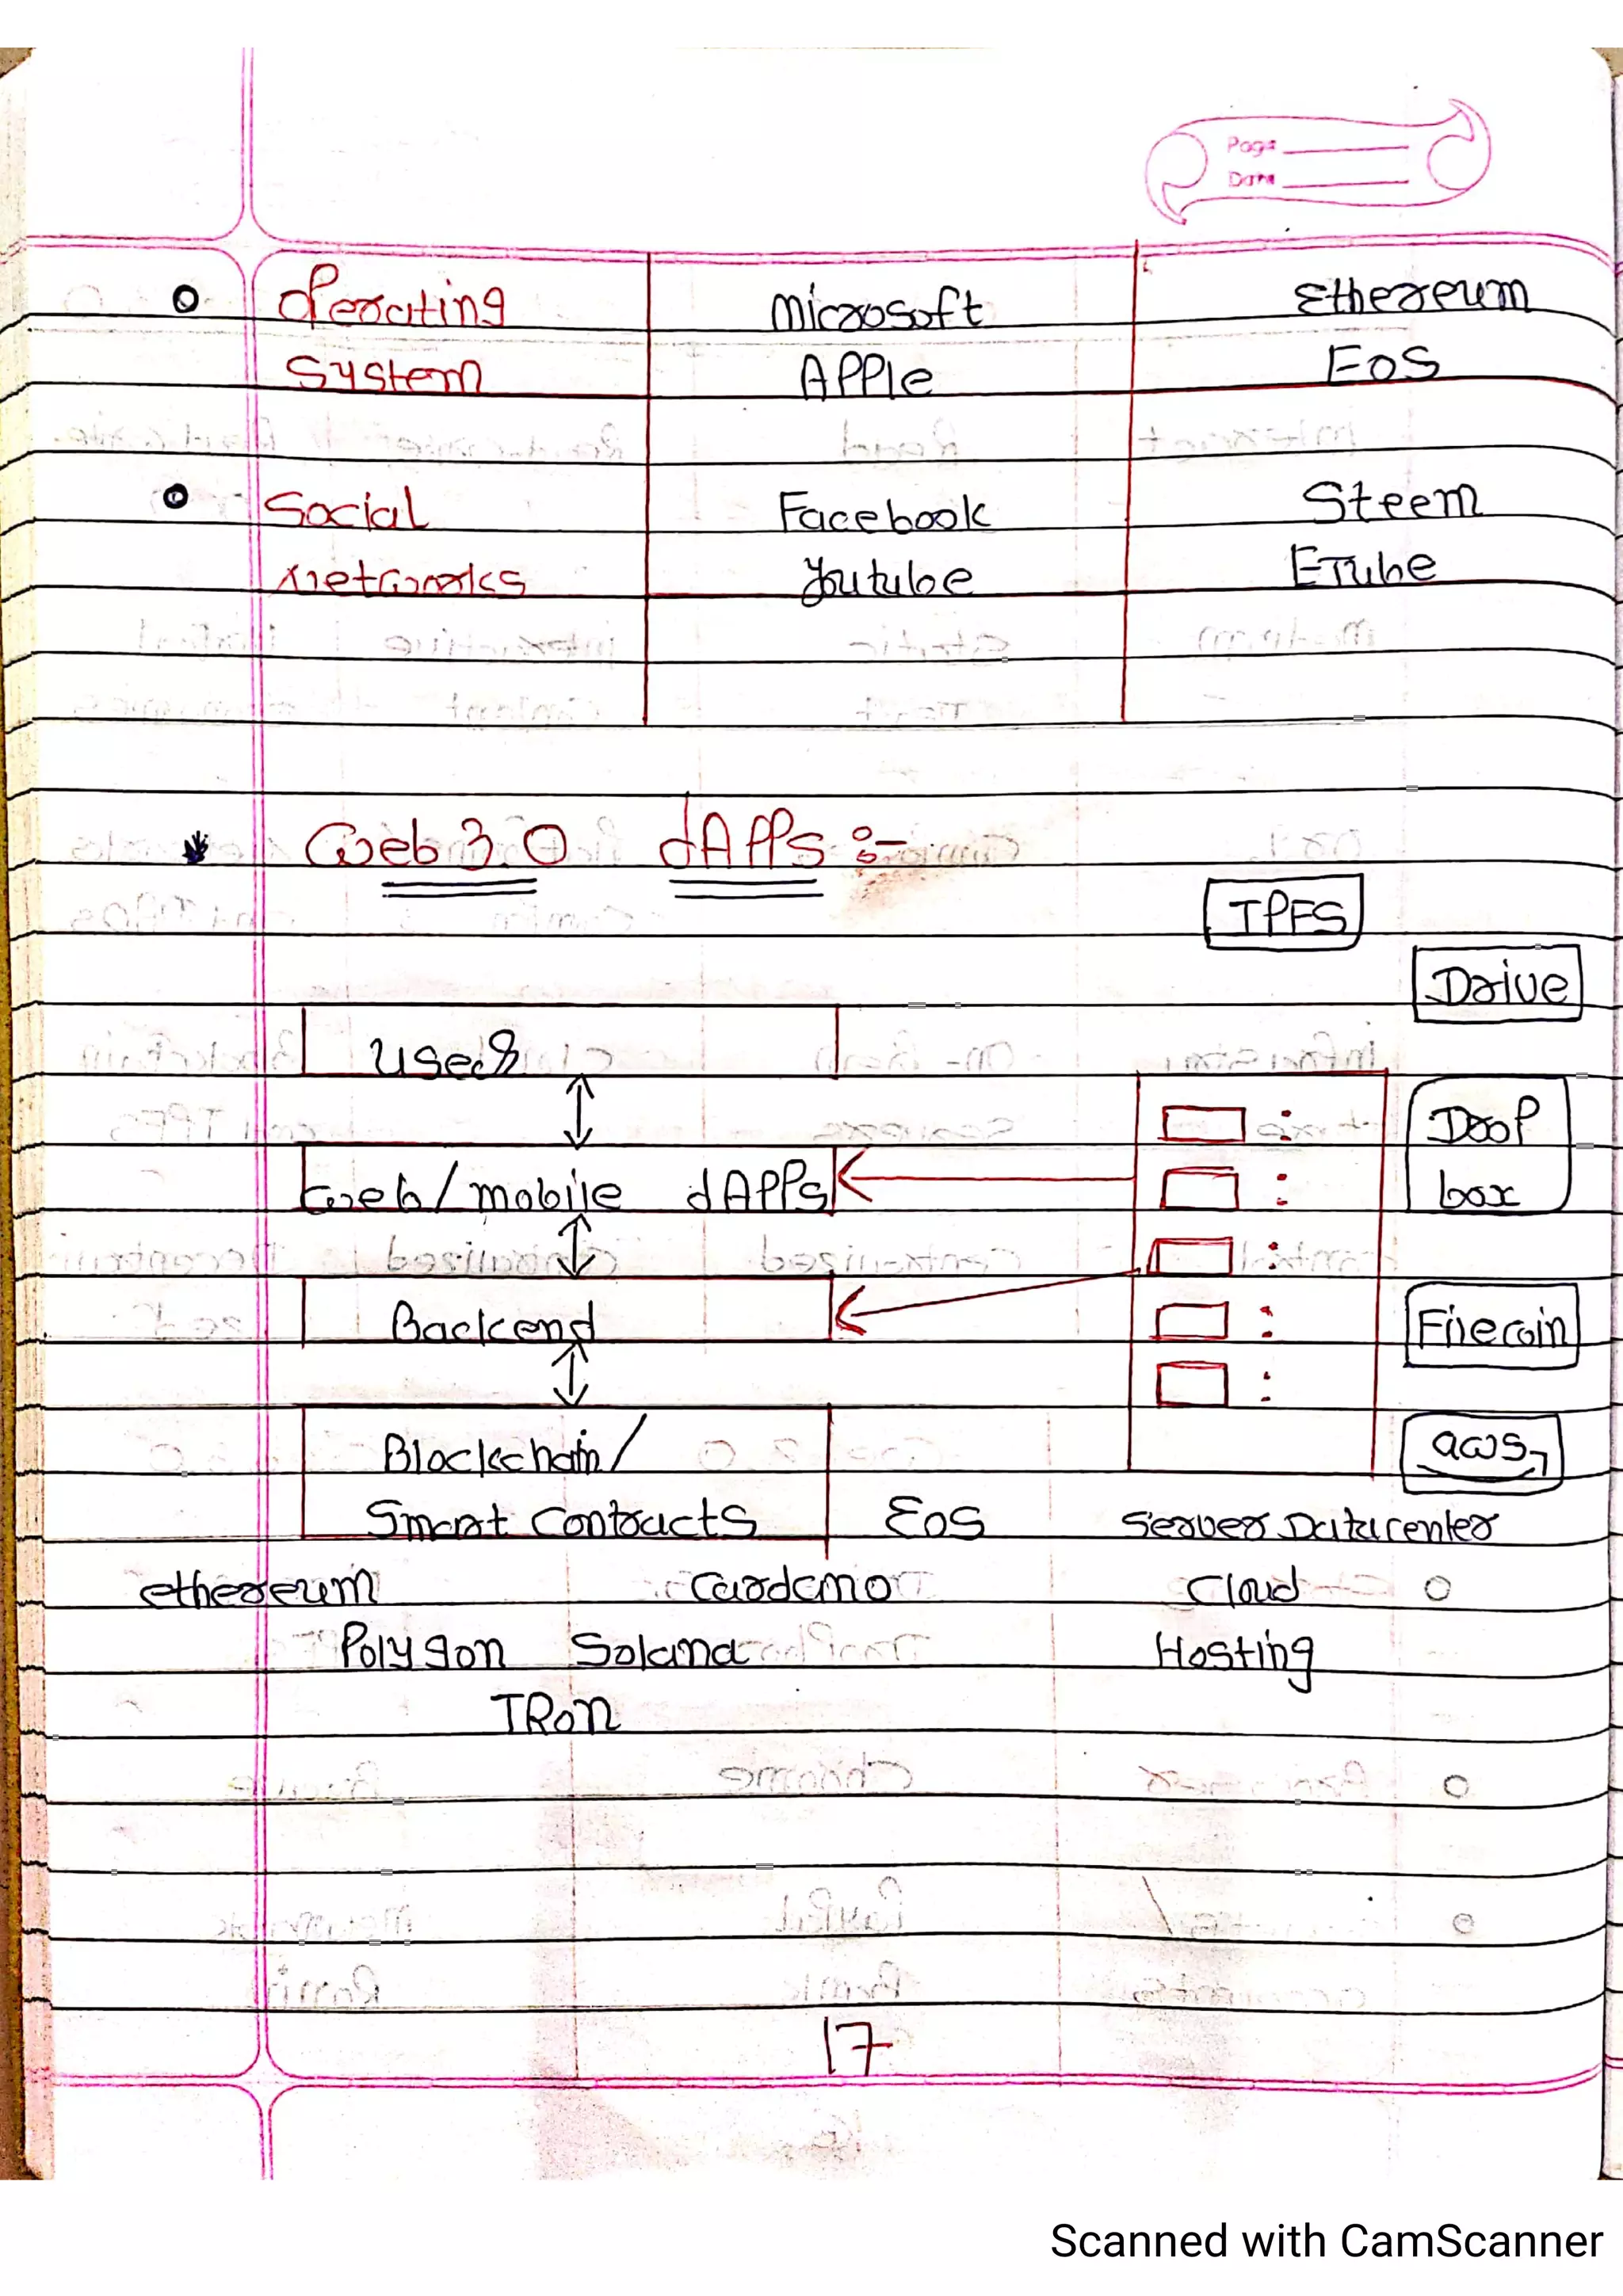 Page
Date
Operating Microsoft Ethereum
System Apple EOS
Social Facebook Steem
Networks Youtube ETube
Web 3.0 dApps :-
IPFS
Drive
Users
Drop
Web/mobile dApps box
Backend Filecoin
Blockchain/ aws
Smart Contracts EOS Server Datacenter
ethereum Cardano Cloud
Polygon Solana Hosting
TRON
17
Scanned with CamScanner